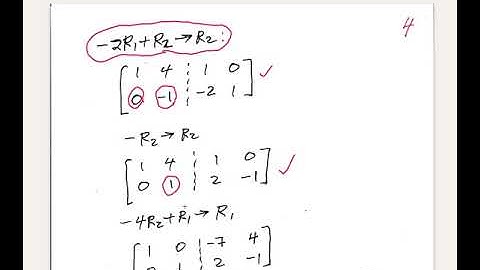 4
-2R₁+R₂→R₂:
[ 1 4 ¦ 1 0 ] ✓
[ 0 -1 ¦ -2 1 ]
-R₂→R₂
[ 1 4 ¦ 1 0 ] ✓
[ 0 1 ¦ 2 -1 ]
-4R₂+R₁→R₁
[ 1 0 ¦ -7 4 ]
[ 0 1 ¦ 2 -1 ]